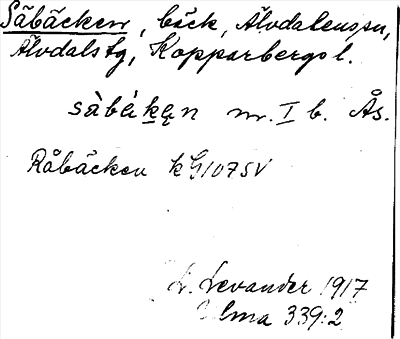 Såbäcken, bäck, Älvdalens sn,
Älvdals tg, Kopparbergs l.
sàbɛ́kęn nr. I b. Ås.
Råbäcken k G107SV
L. Levander 1917
Ulma 339:2